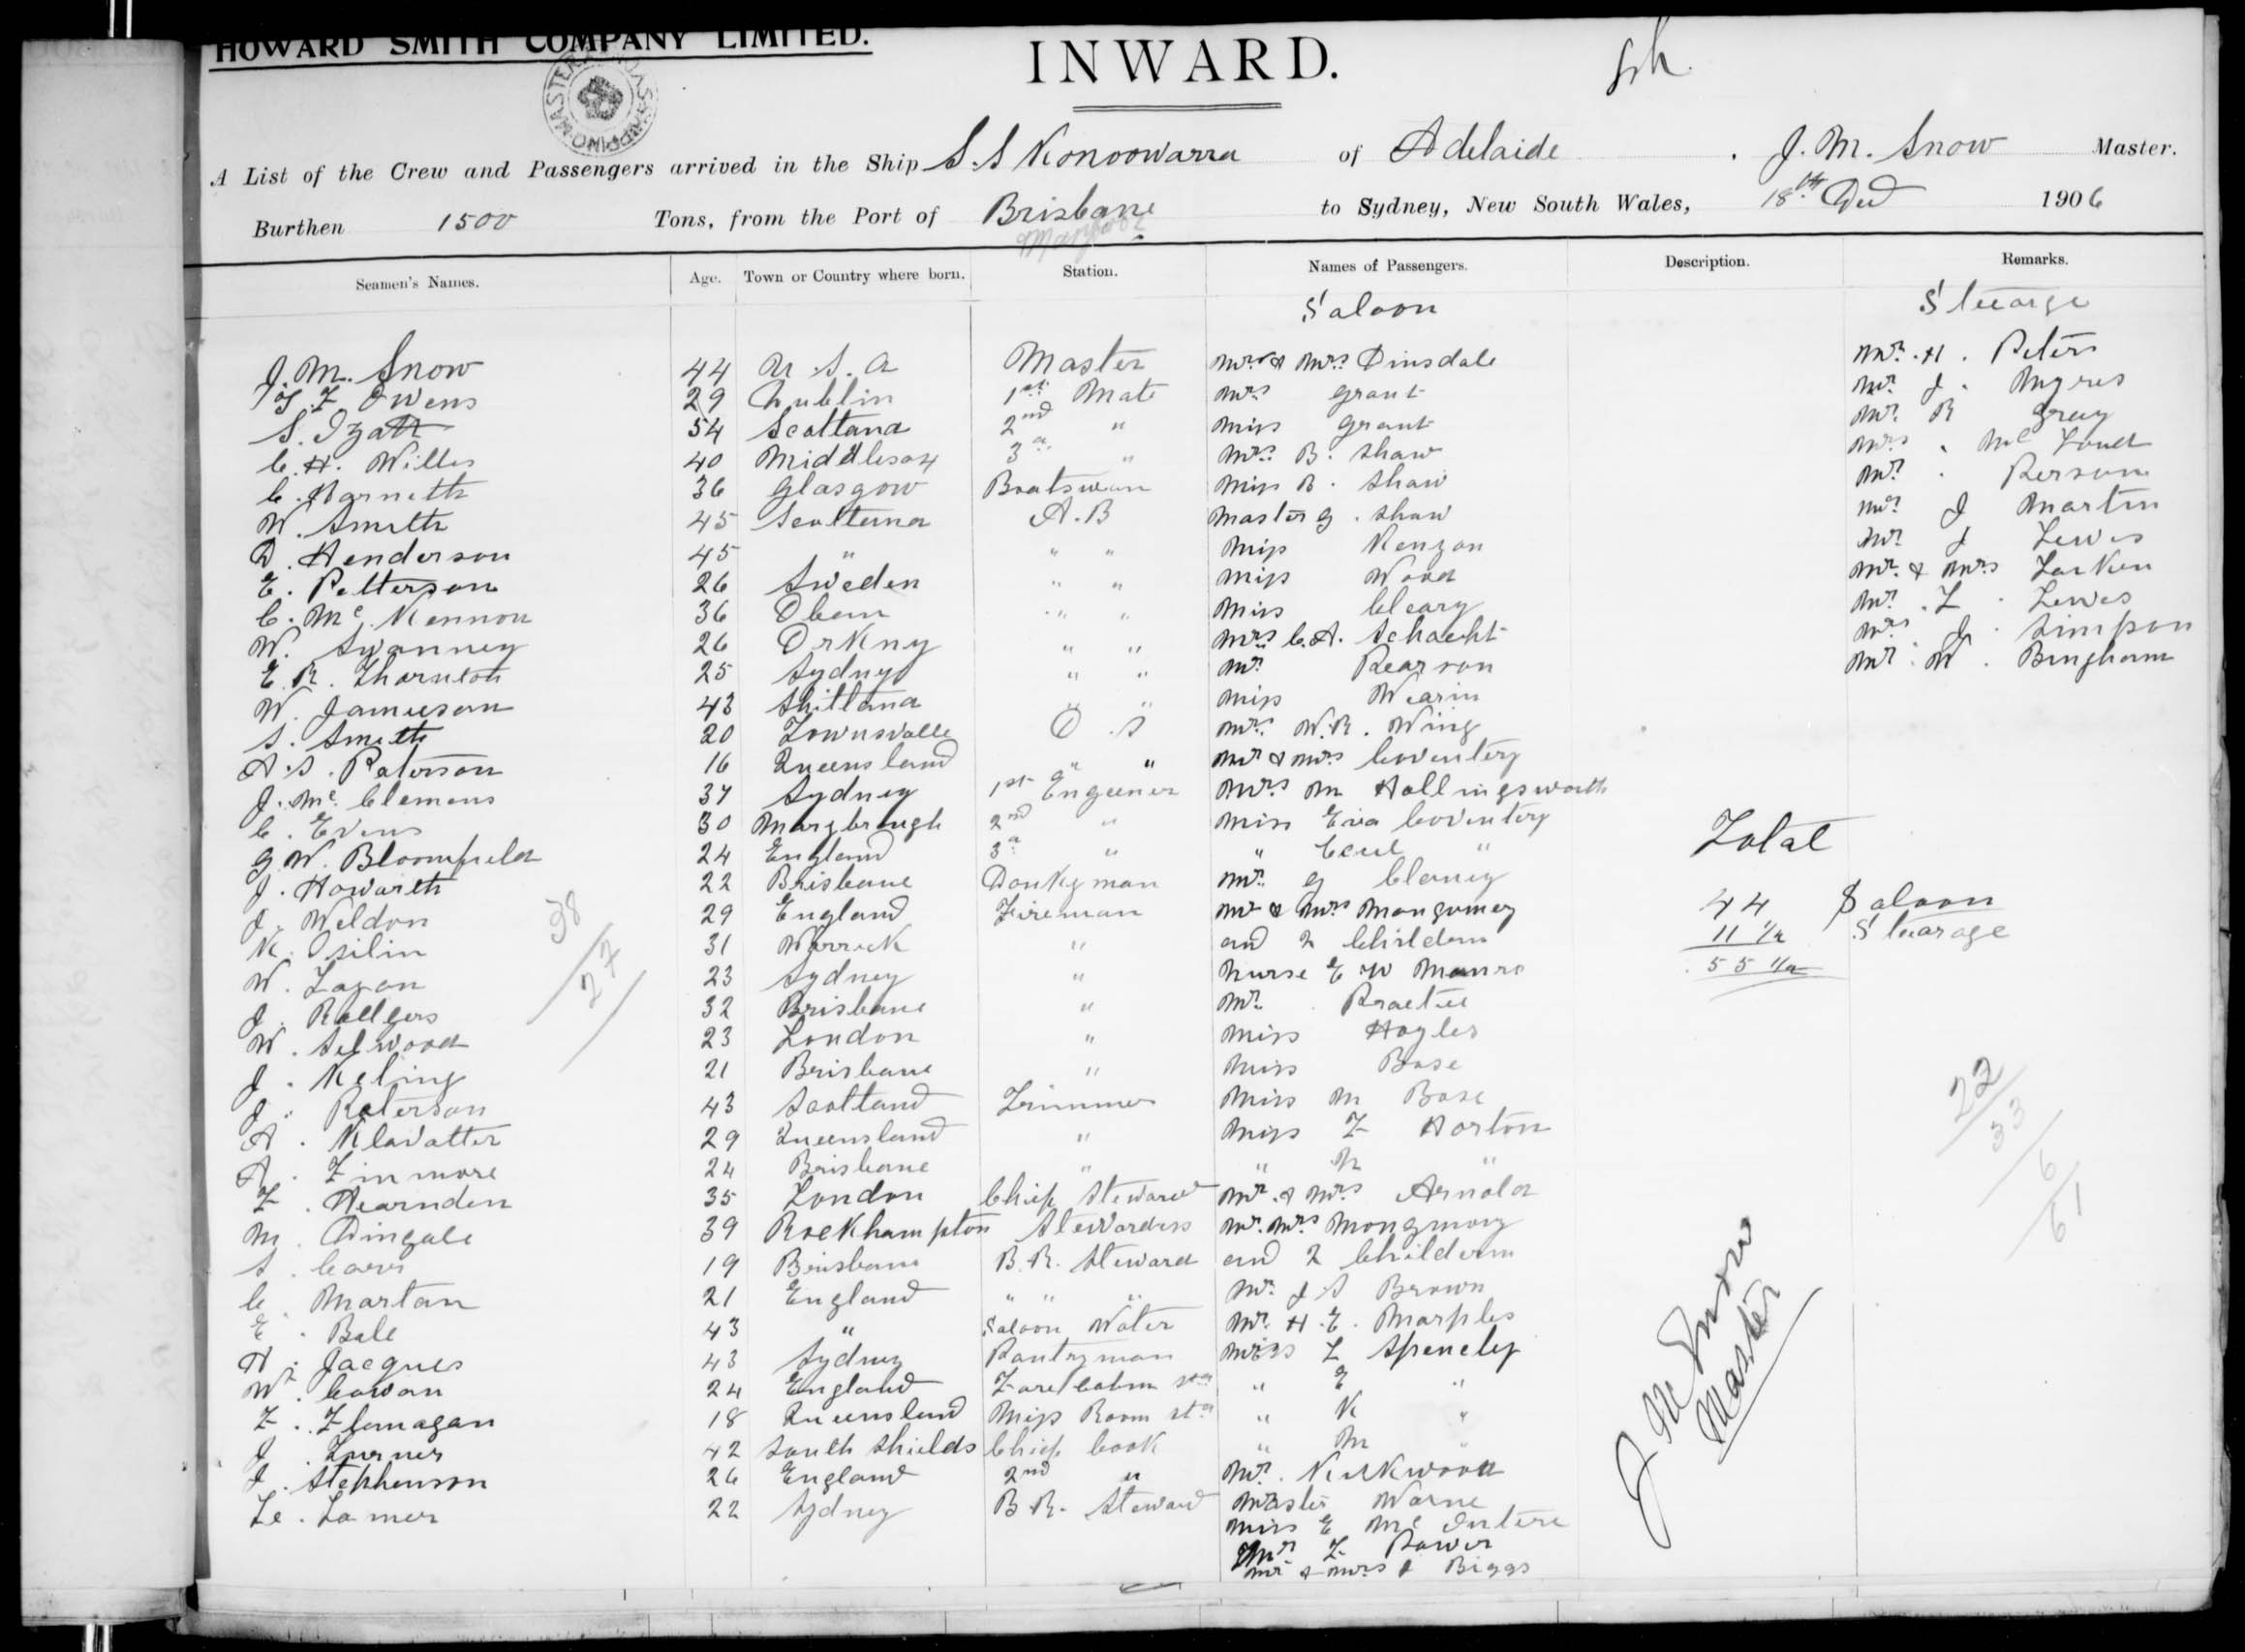 HOWARD SMITH COMPANY LIMITED.
INWARD.
A List of the Crew and Passengers arrived in the Ship S.S Konoowarra of Adelaide . J. M. Snow Master.
Burthen 1500 Tons, from the Port of Brisbane to Sydney, New South Wales, 18th Dec 1906
Seamen's Names. Age. Town or Country where born. Station. Names of Passengers. Description. Remarks.
Saloon Steearge
J. M. Snow 44 U. S. A Master Mr & Mrs Dinsdale Mr. H. Peters
Owens 29 Dublin 1st Mate Mrs Grant Mr J. Myres
S. Izatt 54 Scotland 2nd " Miss Grant Mr. R Gray
C. H. Willes 40 Middlesox 3d " Mrs B. Shaw Mrs. Mc
C. Harneth 36 Glasgow Boatswan Miss B. Shaw Mr. Person
W. Smith 45 Scotland A.B Master G. Shaw Mr J Martin
D. Henderson 45 " " " Miss Kenzon Mr J Lewis
E. Petterson 26 Sweden " " Miss Wood Mr. & Mrs Larken
C. Mc. Kennon 36 Oban " " Miss Cleary Mr. L. Lewes
W. Swanney 26 Orkny " " Mrs C. A. Schacht J. Simpson
E. R. Thornton 25 Sydney " " Mr Pearson Mr. W. Bingham
W. Jamieson 43 Shitland " " Miss Wearin
S. Smith 20 Townsvalle O. S Mrs. W. R. Wing
A. S. Paterson 16 Queensland " " Mr & Mrs Coventery
J. Mc. Clemens 37 Sydney 1st Engeener Mrs M Hollingsworth
C. Evens 30 Marybrough 2nd " Miss Eva Coventery
G. W. Bloomfield 24 England 3d " " Cecil " Total
J. Howarth 22 Brisbane Donkeyman Mr. G Clancy
J. Weldon 29 England Fireman Mr & Mrs Mongomey 44 Saloon
K. Osilin 31 Warrick " and 2 Childern 11 1/2 Stearage
W. Lagan 23 Sydney " Nurse E W Manro 55 1/2
J. Rodgers 32 Brisbane " Mr.
W. Selwood 23 London " Miss Hogles
J. Keling 21 Brisbane " Miss Bose
J. Paterson 43 Scotland Trimmer Miss M Bose
A. Klavatter 29 Queensland " Miss F Horton
A. Finmore 24 Brisbane " " "
F. Hearnden 35 London Chief Steward Mr. & Mrs Arnold
M. Dingale 39 Rockhampton Stewardess Mr. Mrs Mongmory
S. 19 Brisbane B. R. Steward and 2 Childern
C. Martan 21 England " " " Mr. J S Brown
E. Bale 43 " Saloon Water Mr. H. E. Marples
H. Jacques 43 Sydney Pantryman Miss L Spencley
W. Cowan 24 England Fore Cabin Std " E "
F. Flanagan 18 Queensland Miss Room Std " K "
J. Turner 42 South Shields Chief Cook " M "
J. Stephenson 26 England 2nd " Mr. Kirkwood
Le. Lamer 22 Sydney B. R. Steward Master Warne
Miss E Mc Intere
Mr F Power
Mr & Mrs J Biggs
38
27
22
33
6
61
J. M. Snow
Master